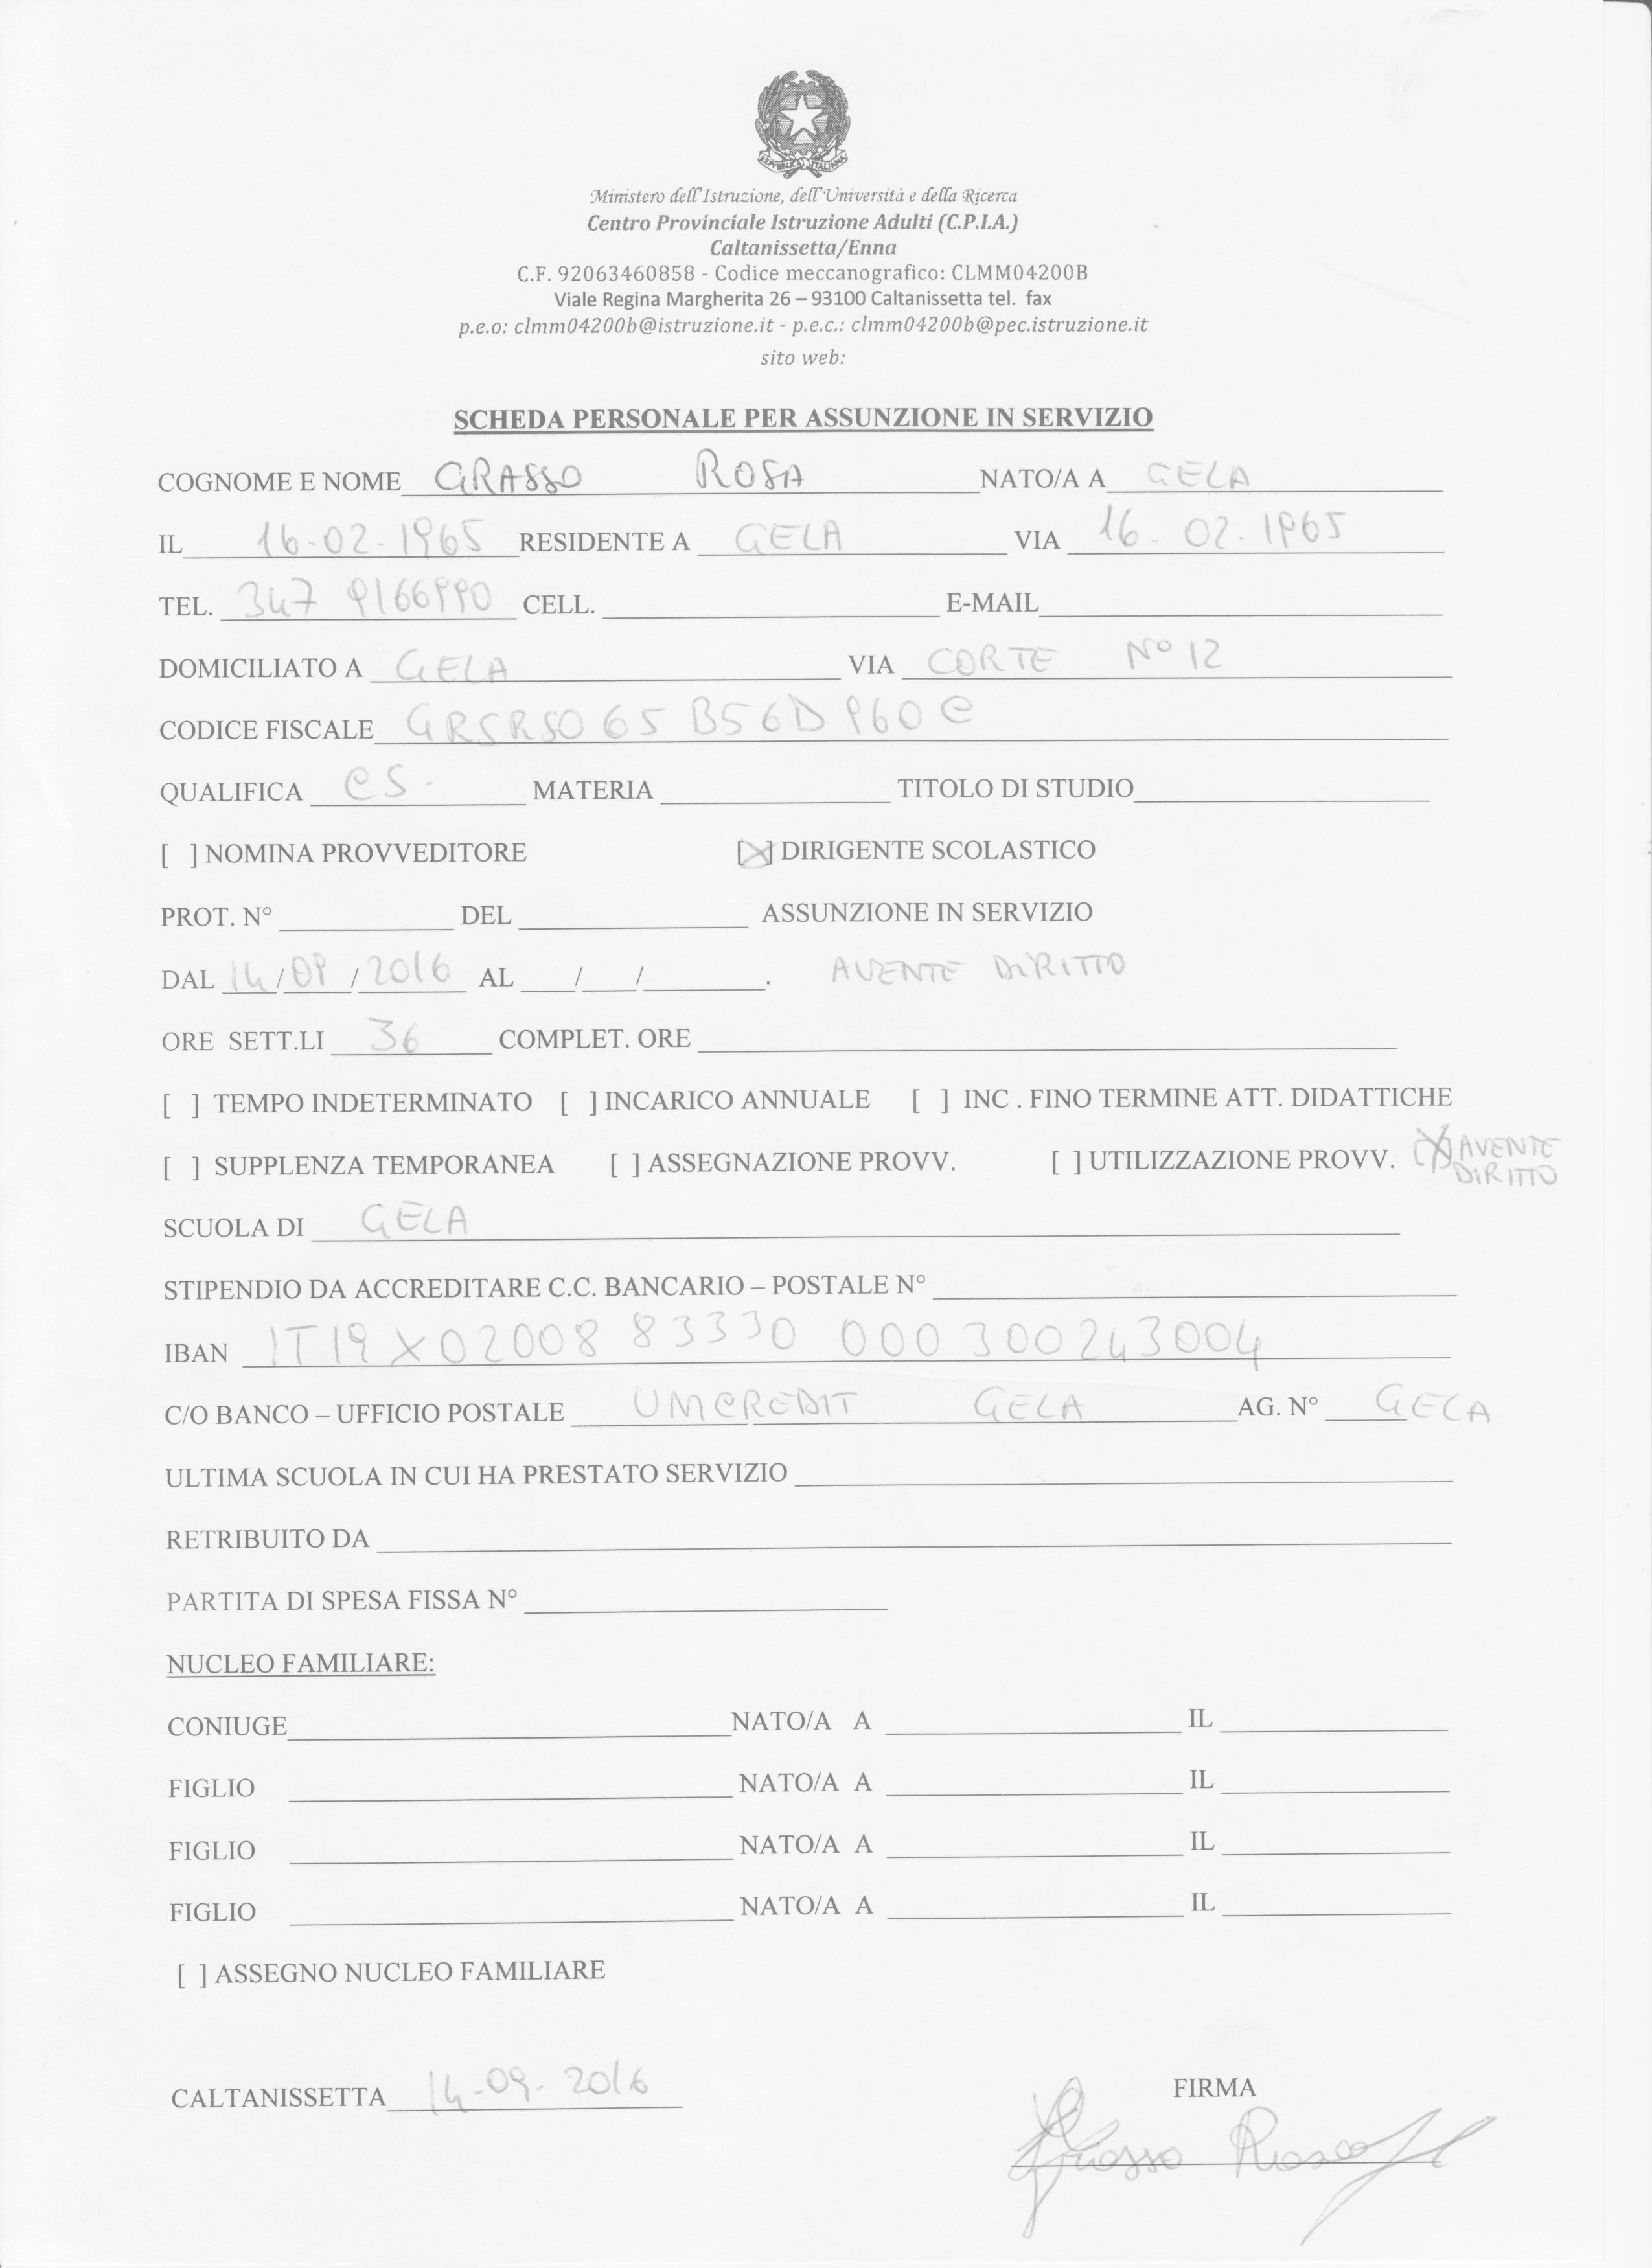 REPVBBLICA ITALIANA
Ministero dell'Istruzione, dell'Università e della Ricerca
Centro Provinciale Istruzione Adulti (C.P.I.A.)
Caltanissetta/Enna
C.F. 92063460858 - Codice meccanografico: CLMM04200B
Viale Regina Margherita 26 – 93100 Caltanissetta tel. fax
p.e.o: clmm04200b@istruzione.it - p.e.c.: clmm04200b@pec.istruzione.it
sito web:
SCHEDA PERSONALE PER ASSUNZIONE IN SERVIZIO
COGNOME E NOME GRASSO ROSA NATO/A A GELA
IL 16-02-1965 RESIDENTE A GELA VIA 16.02.1965
TEL. 347 9166990 CELL. E-MAIL
DOMICILIATO A GELA VIA CORTE N° 12
CODICE FISCALE GRSRSO65B56D960C
QUALIFICA CS- MATERIA TITOLO DI STUDIO
[ ] NOMINA PROVVEDITORE [X] DIRIGENTE SCOLASTICO
PROT. N° DEL ASSUNZIONE IN SERVIZIO
DAL 14/09/2016 AL / / . AVENTE DIRITTO
ORE SETT.LI 36 COMPLET. ORE
[ ] TEMPO INDETERMINATO [ ] INCARICO ANNUALE [ ] INC . FINO TERMINE ATT. DIDATTICHE
[ ] SUPPLENZA TEMPORANEA [ ] ASSEGNAZIONE PROVV. [ ] UTILIZZAZIONE PROVV. [X] AVENTE DIRITTO
SCUOLA DI GELA
STIPENDIO DA ACCREDITARE C.C. BANCARIO – POSTALE N°
IBAN IT19X0200883330000300243004
C/O BANCO – UFFICIO POSTALE UNICREDIT GELA AG. N° GELA
ULTIMA SCUOLA IN CUI HA PRESTATO SERVIZIO
RETRIBUITO DA
PARTITA DI SPESA FISSA N°
NUCLEO FAMILIARE:
CONIUGE NATO/A A IL
FIGLIO NATO/A A IL
FIGLIO NATO/A A IL
FIGLIO NATO/A A IL
[ ] ASSEGNO NUCLEO FAMILIARE
CALTANISSETTA 14-09-2016 FIRMA
Grasso Rosa